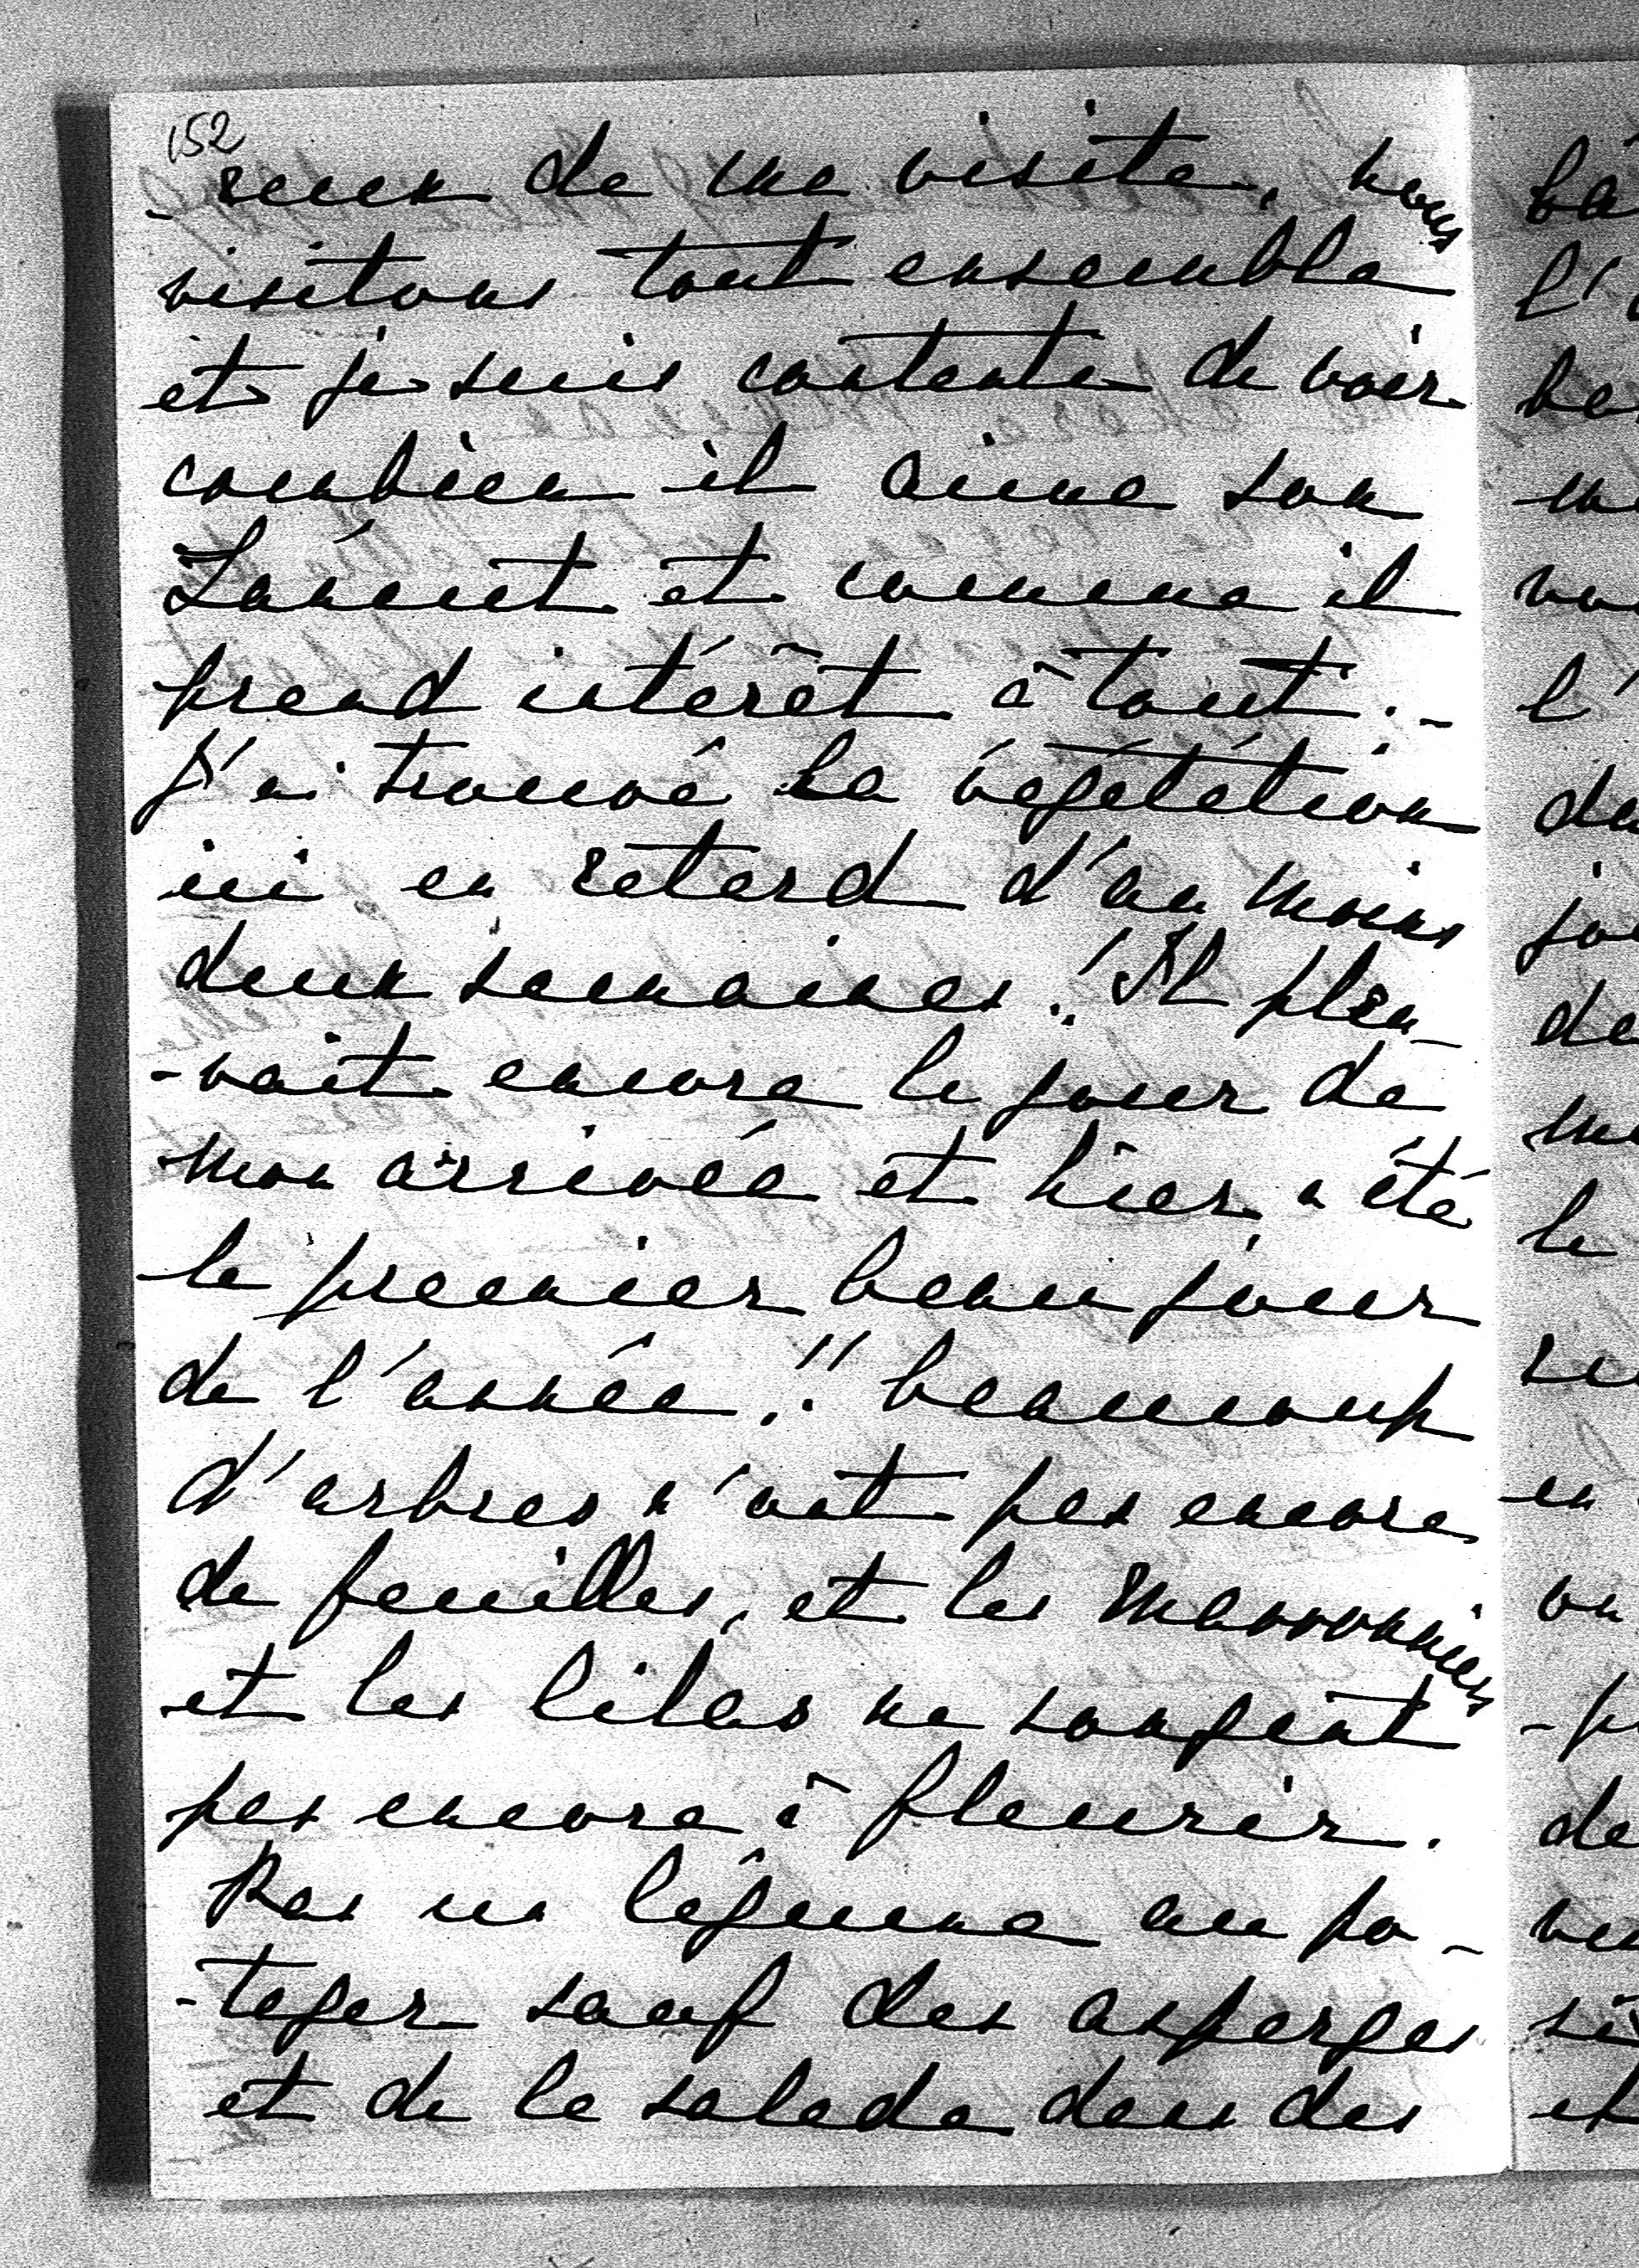 152
-reux de ma visite, nous
visitons tout ensemble
et je suis contente de voir
combien il aime son
Lancut et comme il
prend intérêt à tout. -
J'ai trouvé la végétation
ici en retard d'au moins
deux semaines! Il pleu-
-vait encore le jour de
mon arrivée et hier a été
le premier beau jour
de l'année!! beaucoup
d'arbres n'ont pas encore
de feuilles, et les marronniers
et les lilas ne songent
pas encore à fleurir.
Pas un légume au po-
-tager sauf des asperges
et de la salade dans des